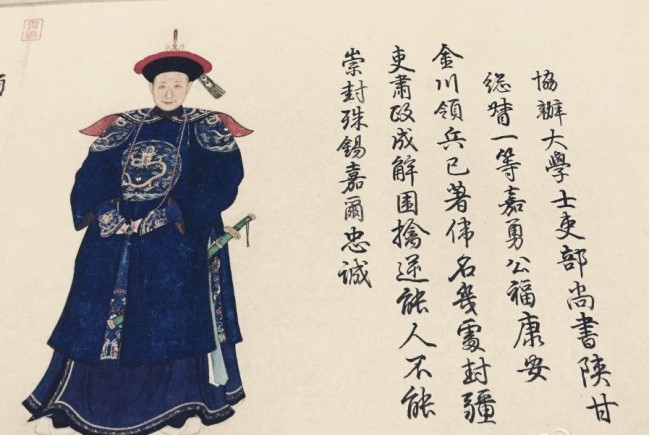 協辦大學士吏部尚書陝甘
総督一等嘉勇公福康安
金川領兵已著偉名幾處封疆
吏肅政成解圍擒逆能人不能
崇封殊錫嘉爾忠誠